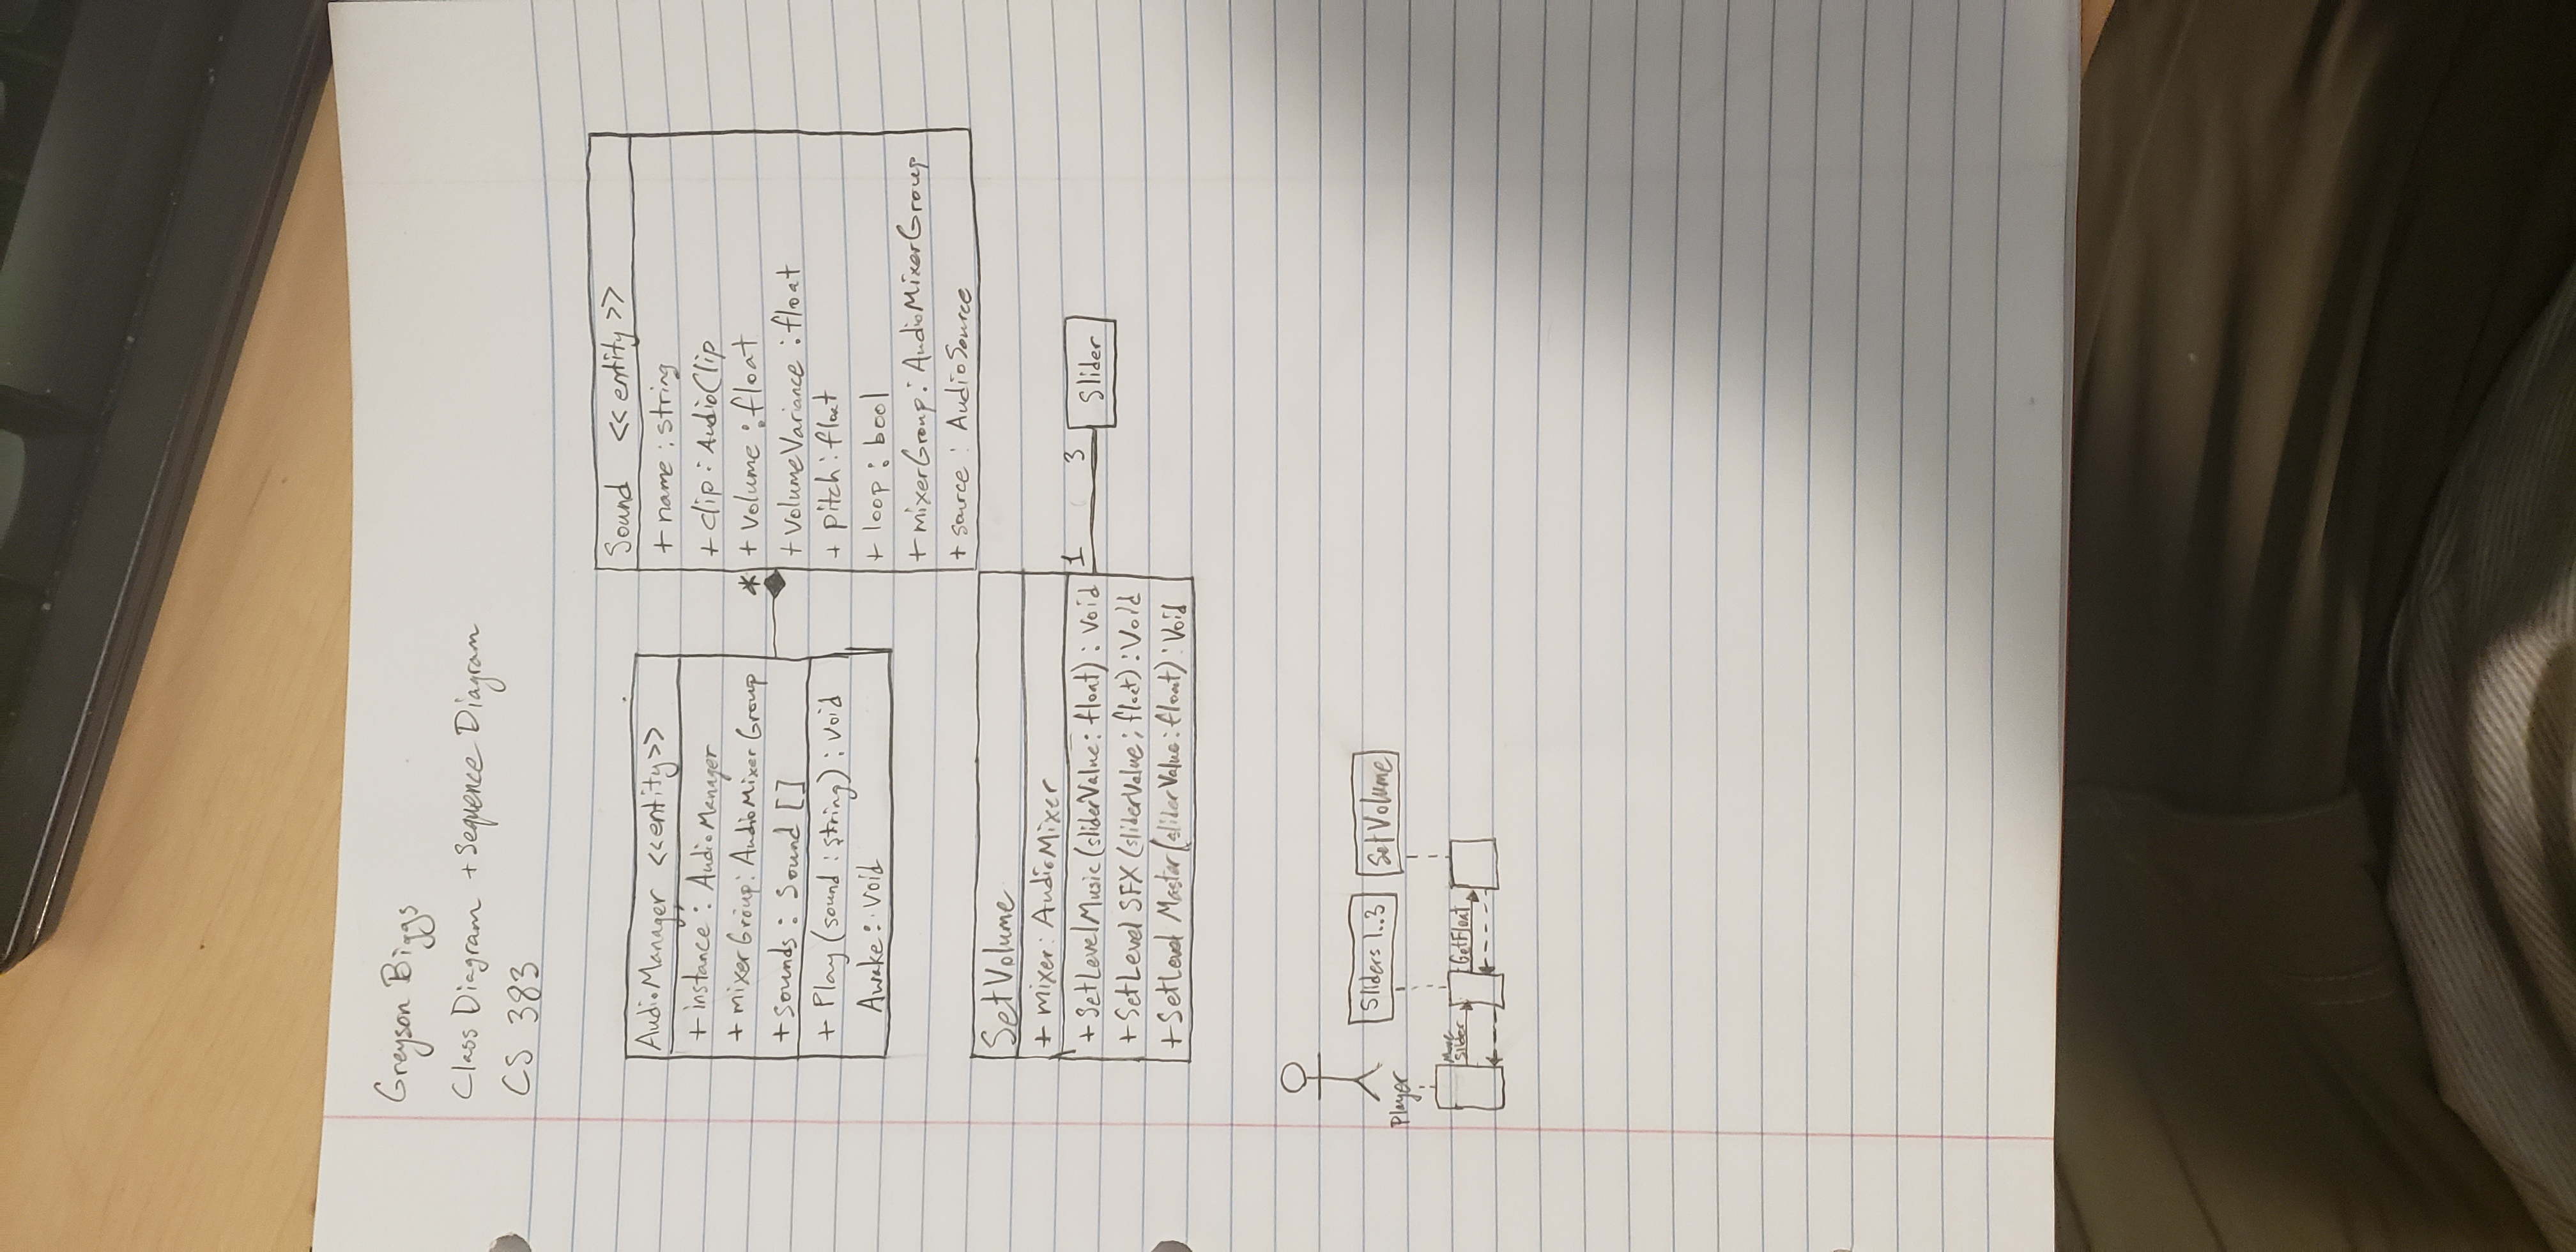 Greyson Biggs
Class Diagram + Sequence Diagram
CS 383
AudioManager <<entity>>
+ instance : AudioManager
+ mixerGroup: AudioMixerGroup
+ sounds : Sound []
+ Play (sound : string) : void
Awake : void
*
Sound <<entity>>
+ name : string
+ clip : AudioClip
+ volume : float
+ volumeVariance : float
+ pitch : float
+ loop : bool
+ mixerGroup : AudioMixerGroup
+ source : AudioSource
SetVolume
+ mixer: AudioMixer
+ SetLevelMusic (sliderValue: float) : Void
+ SetLevel SFX (sliderValue; float) : Void
+ SetLevel Master (sliderValue: float) : Void
1 3
Slider
Player
Sliders 1..3
SetVolume
Move
Slider
GetFloat